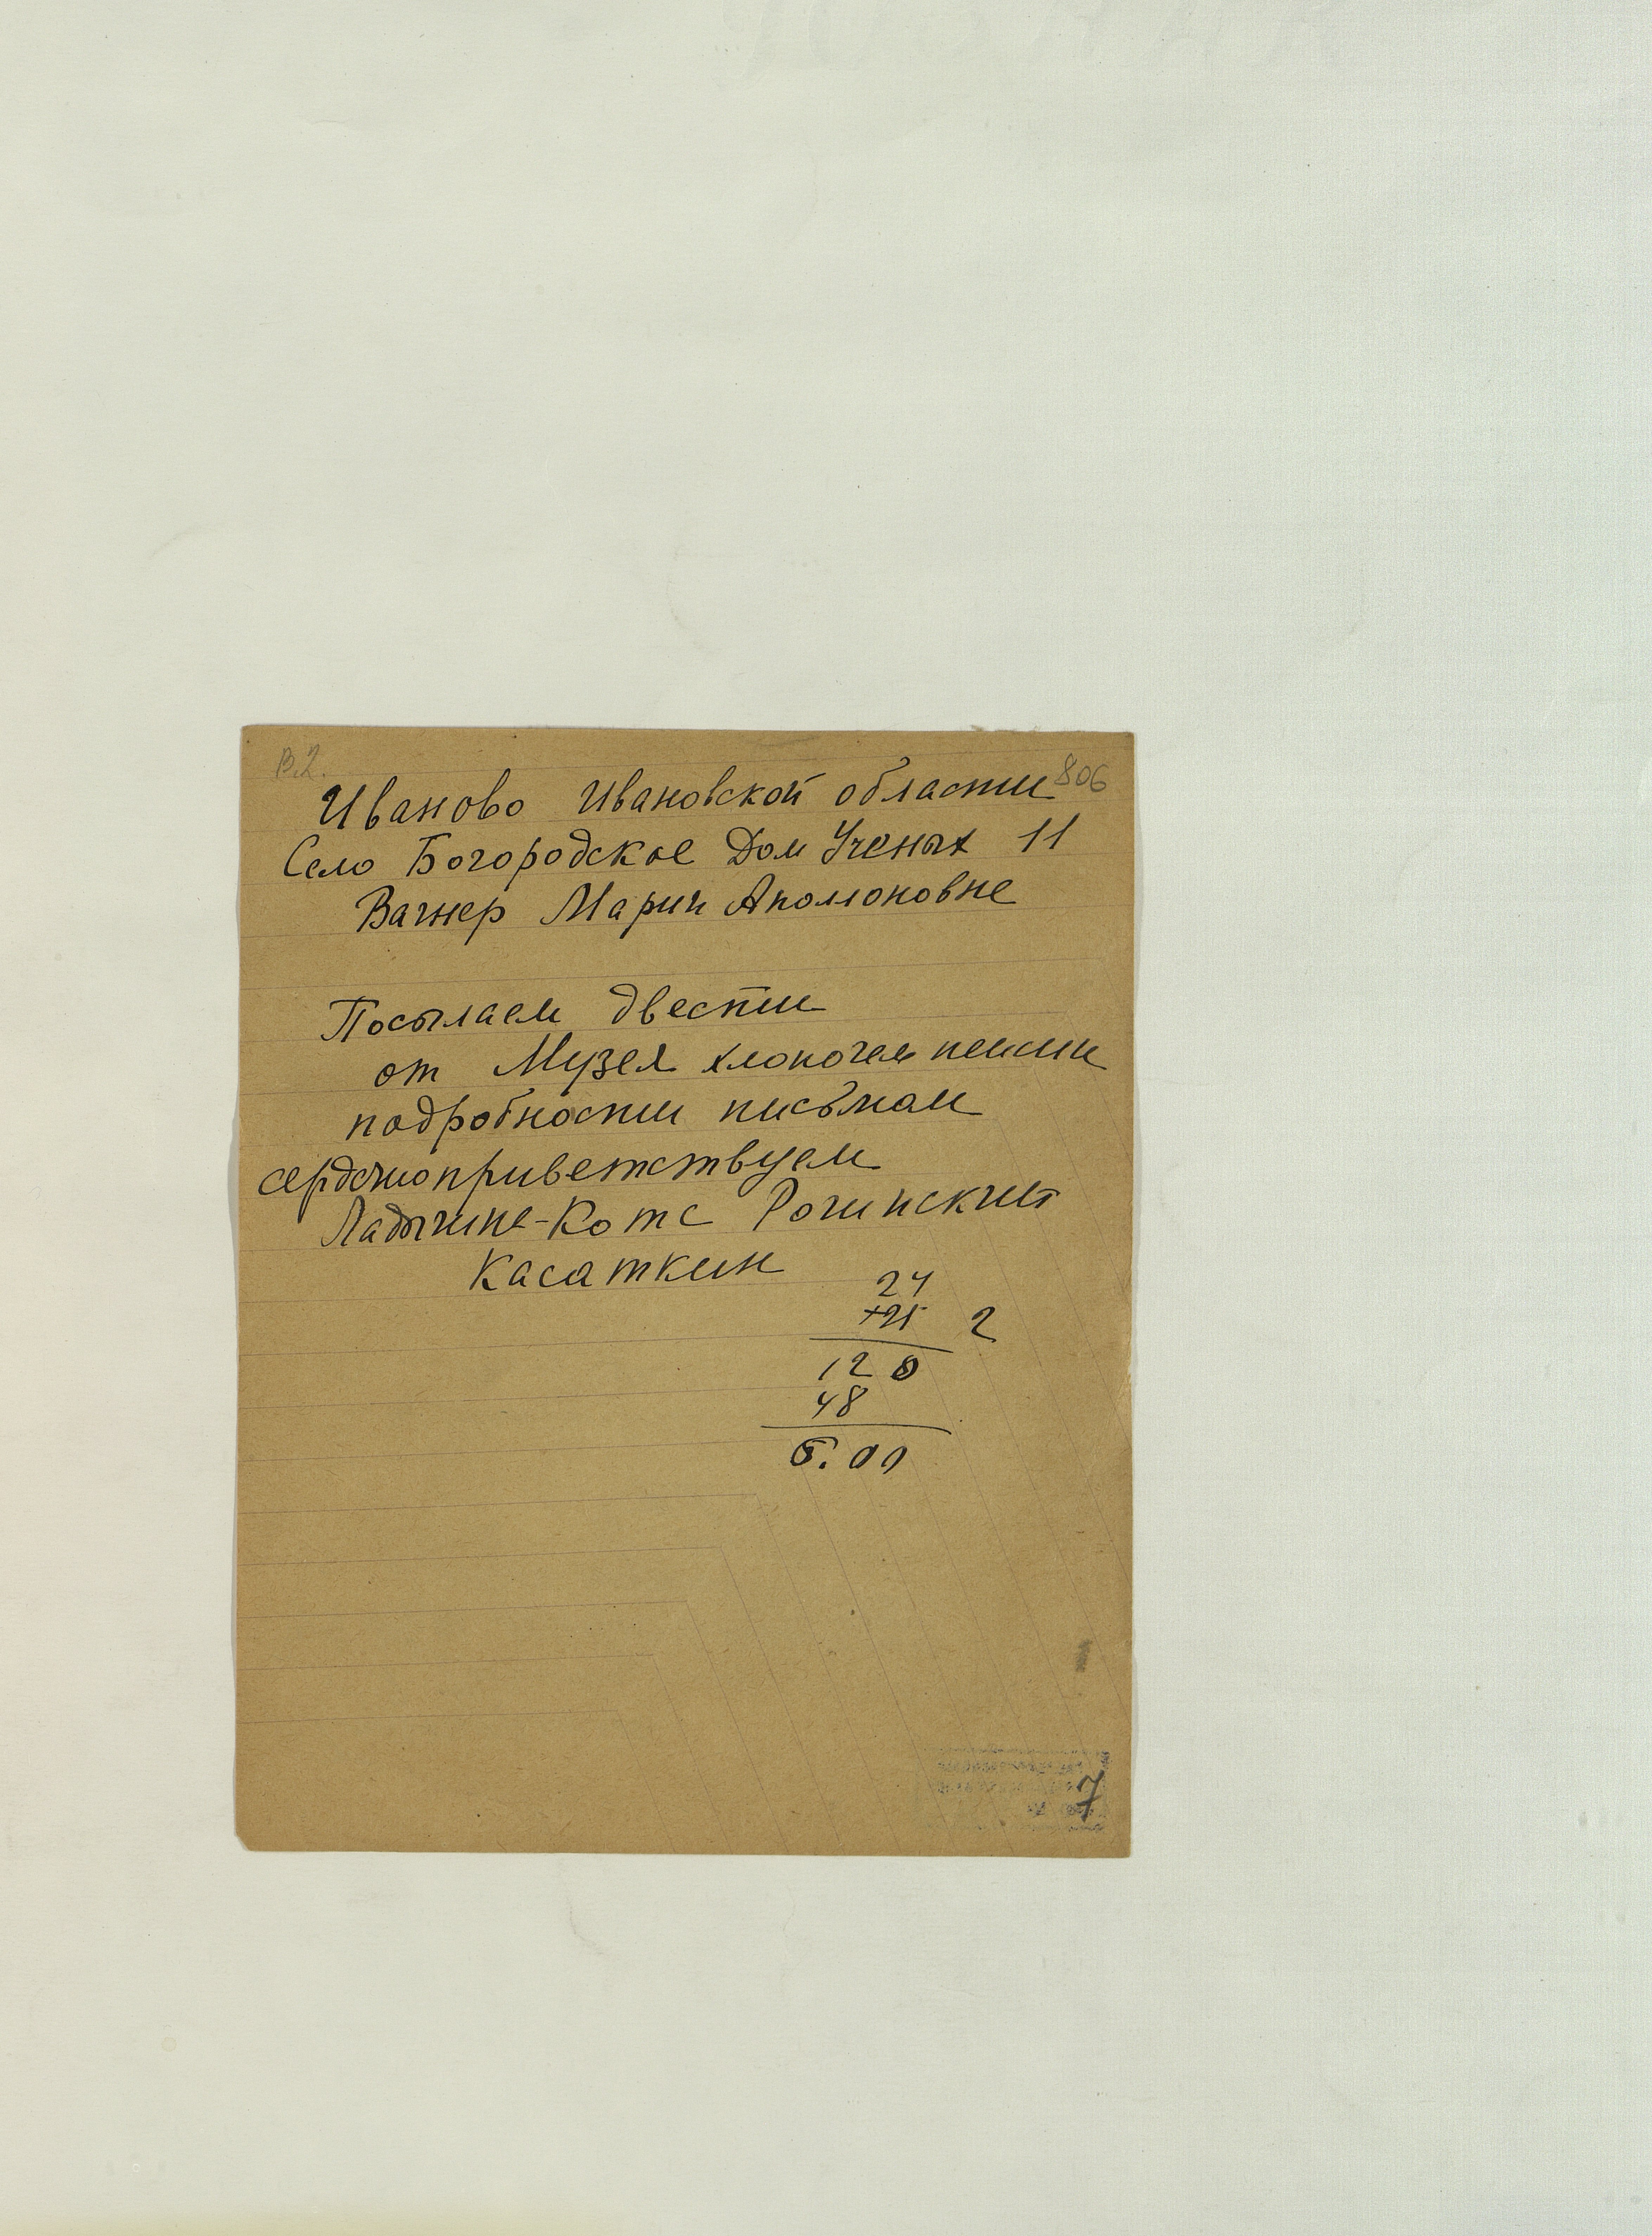 В.2.
806
Иваново Ивановской области
Село Богородское Дом Ученых 11
Вагнер Марии Аполоновне
Посылаем двести
от Музея хлопочем пенсии
подробности письмом
сердечноприветствуем
Ладыгина-Котс Рогинский
Касаткин
24
×25 2
120
48
6.00
7